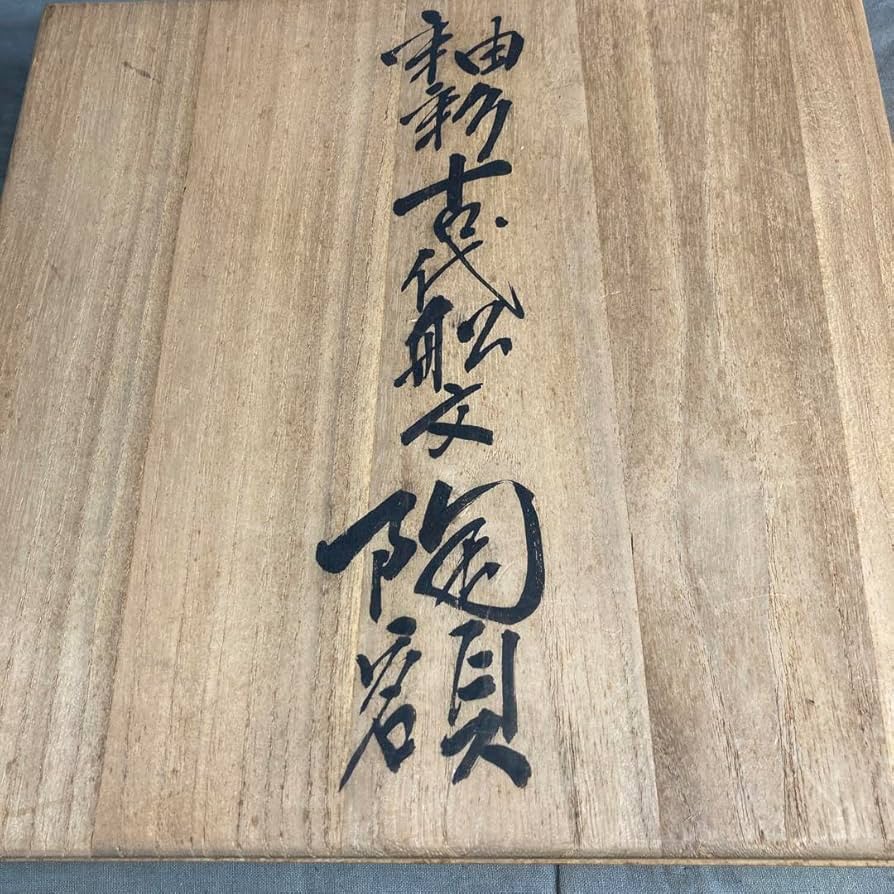 釉彩古代船文陶額